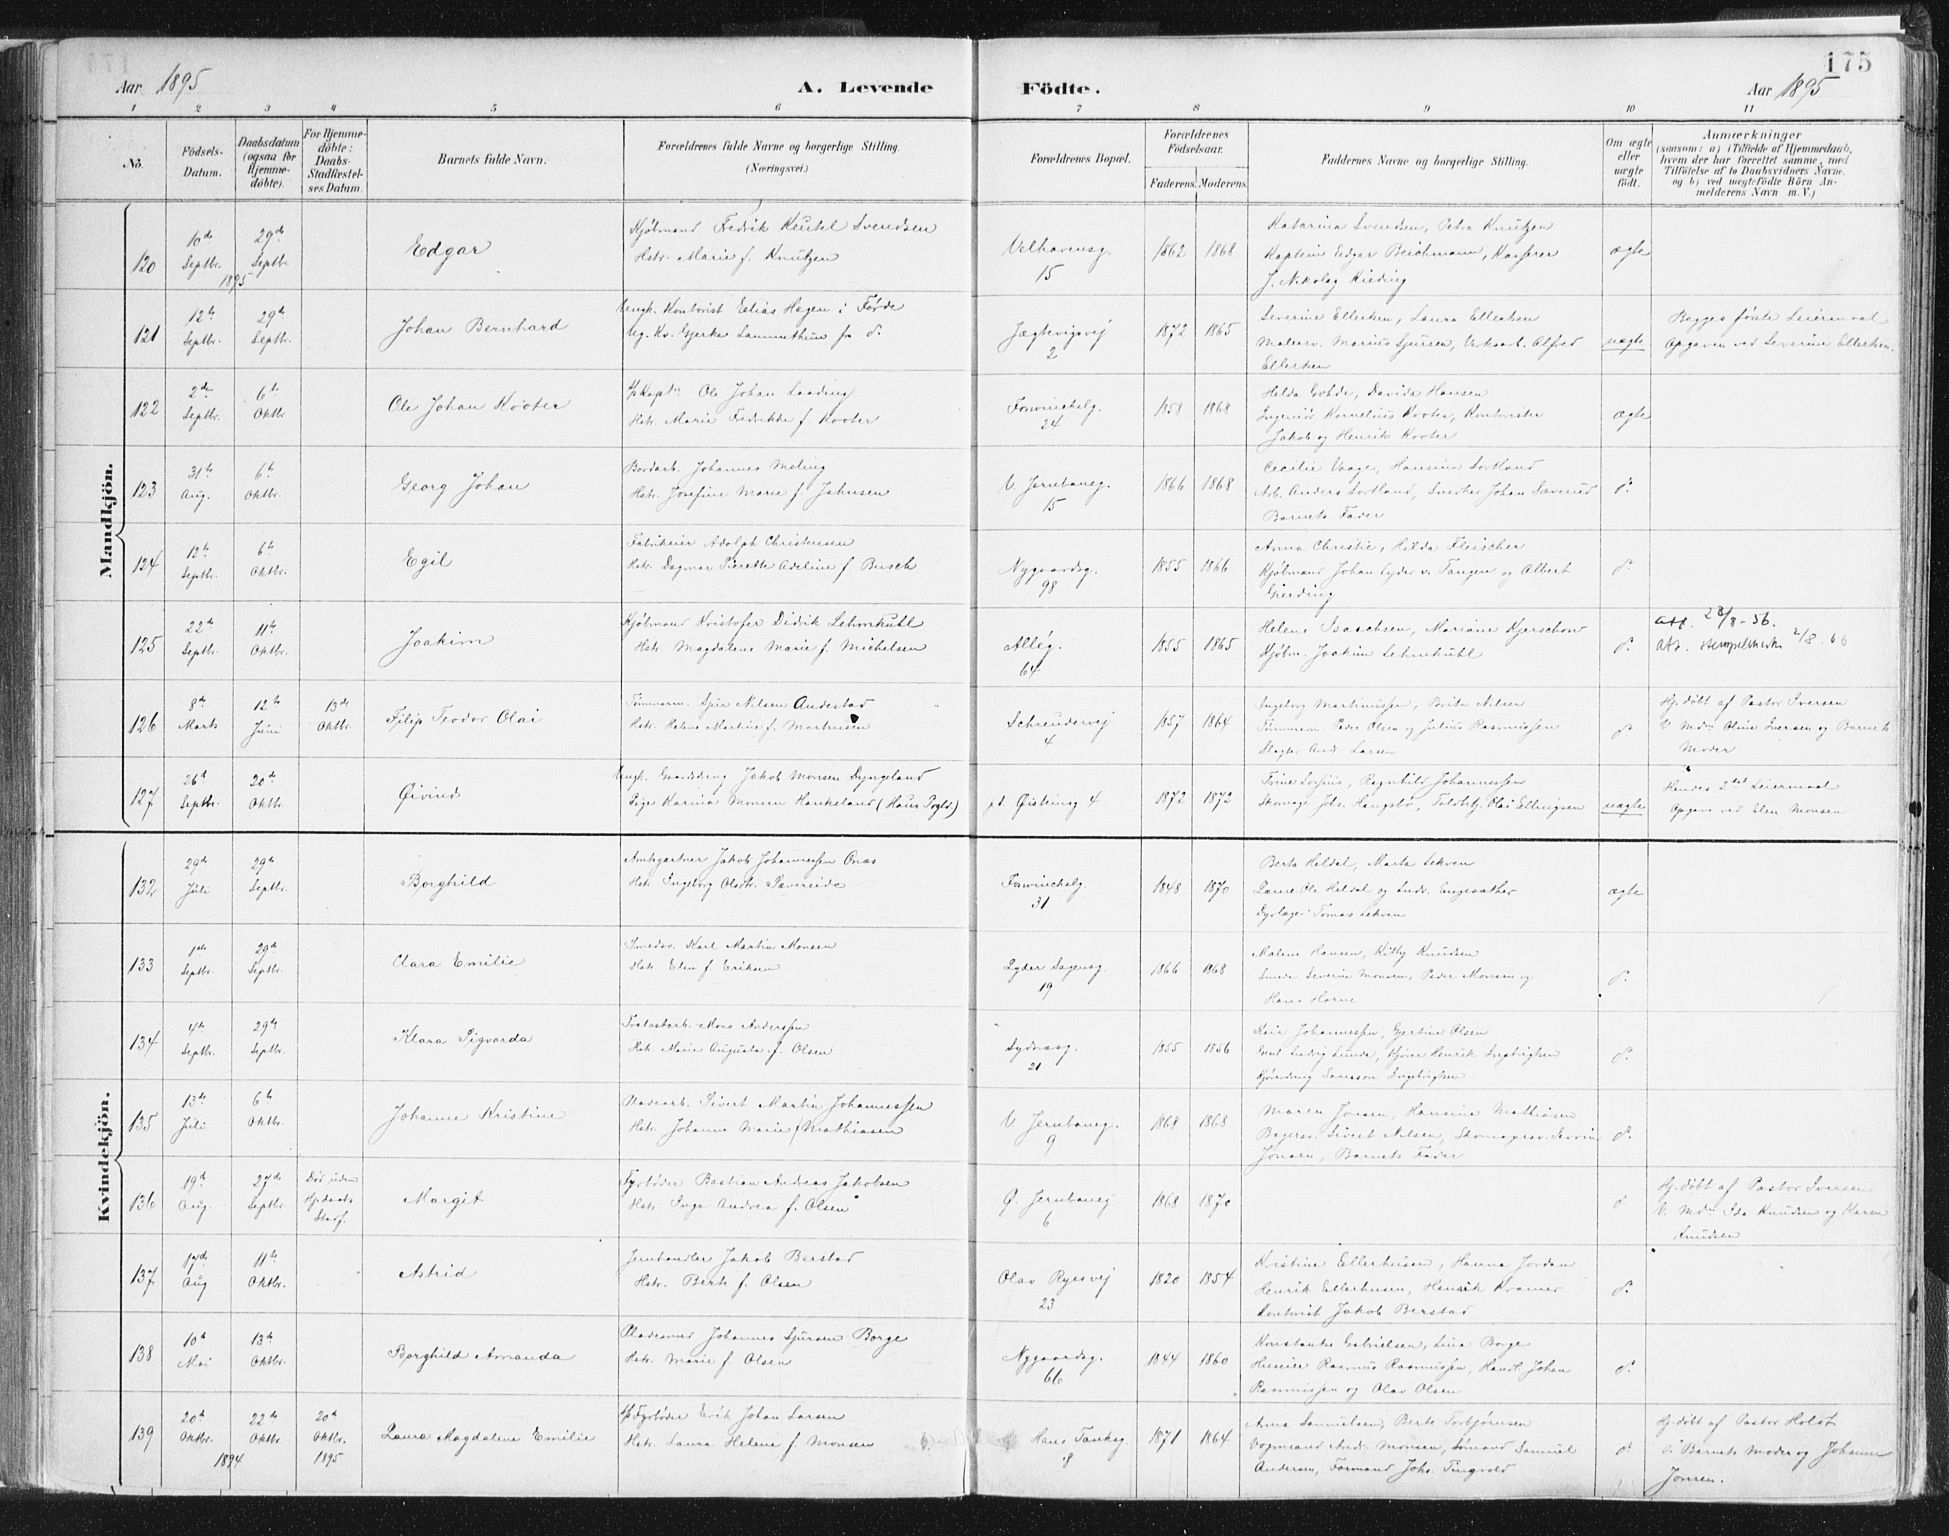 175
Aar 1895
A. Levende
Födte.
Aar 1895
1 2 3 4 5 6 7 8 9 10 11
No.
Födsels-
Datum.
Daabsdatum
(ogsaa for
Hjemme-
döbte).
For Hjemme-
döbte:
Daabs-
Stadfæstel-
ses Datum.
Barnets fulde Navn.
Forældrenes fulde Navne og borgerlige Stilling.
(Næringsvei.)
Forældrenes Bopæl.
Forældrenes
Födselsaar.
Faderens. Moderens.
Faddernes Navne og borgerlige Stilling.
Om ægte
eller
uægte
födt.
Anmærkninger
(saasom: a) i Tilfælde af Hjemmedaab,
hvem der har forrettet samme, med
Tilföielse af to Daabsvidners Navne,
og b) ved uægtefödte Börn An-
melderens Navn m. V.)
Mandkjön.
120
10de Septbr. 1895
29de Septbr.
Edgar
Kjøbmand Fredrik Svendsen
Hstr. Marie f. Knutzen
Velhavensg.
15
1862 1868
Katarina Svendsen, Petra Knutzen
Kaptein Edgar Beichmann, Kasserer
J. Nikolay Kieding
ægte
121
12te Septbr.
29de Septbr.
Johan Bernhard
Ungk. Kontorist Elias Hagen i Førde
Ug. Kv. Gjerke fra do
Jægtevigsvej
2
1872 1865
Severine Ellerhen, Laura Ellerhen
Malersv. Marius Sjursen, Alfred
Ellerhen
uægte
Begges første Leiermaal
Opgaven ved Severine Ellerhen.
122
2den Septbr.
6te Oktbr.
Ole Johan Kooter
Ole Johan Laading
Hstr. Marie Fredrikke f. Kooter
24
1858 1868
Helda Davida Hansen
Ingeniør Kornelius Kooter, Kontorister
Jakob og Henrik Kooter
ægte
123
31te Aug.
6te Oktbr.
Georg Johan
Bordarb. Johannes Meling
Hstr. Josefine Marie f. Johnsen
V. Jernbaneg.
15
1866 1868
Cecilie Vaage, Hansine Sortland
Arb. Anders Sortland, Snedker Johan Sæverud
Barnets Fader
do.
124
12te Septbr.
6te Oktbr.
Egil
Fabrikeier Adolph Christensen
Hstr. Dagmar Pierette Adeline f. Busch
Nygaardsg.
98
1855 1866
Anna Christie, Hilda Fleischer
Kjøbmand Johan Lyder v. Tangen og Albert
Gierding
do.
125
22de Septbr.
11te Oktbr.
Joakim
Kjøbmand Kristofer Didrik Lehmkuhl
Hstr. Magdalene Marie f. Michelsen
Alleg.
64
1855 1865
Helene Isachsen, Mariane Kjerschow
Kjøbm. Joakim Lehmkuhl
do.
att. 28/8-56.
att. stempelmerke 2/8.66
126
8de Marts
12te Juni
13de Oktbr.
Filip Teodor Olai
Tømmerm. Sjur Nilsen Andestad
Hstr. Helene Martine f. Martinsen
4
1857 1864
Ingeborg Martinussen, Brita Nilsen
Tømmerm. Peder Olsen og Julius Rasmussen
Slagter And. Larsen
do.
Hj.døbt af Pastor Iversen
V. Mdm Oline Iversen og Barnets
Moder
127
26de Septbr.
20de Oktbr.
Øivind
Ungk. Gaardsdreng Jakob Monsen Dyngeland
Pige Karina Monsen Haukeland (Haus Pgld.)
pt. Øistensg 4
1872 1872
Ragnhild Johannessen
Skomag. Johs. Hangslø, Toldbtj. Olai Ellingsen
uægte
Hendes 2det Leiermaal
Opgave ved Elen Monsen
Kvindekjön.
132
29de Juli
29de Septbr.
Borghild
Amtsgartner Jakob Johannessen Onæs
Hstr. Ingeborg Olsdtr. Sævereide
31
1848 1870
Berta Heldal, Marta Lekven
Lærer Ole Heldal og Andr. Engesæther
Dyrlæge Tomas Lekven
ægte
133
1ste Septbr.
29de Septbr.
Clara Emilie
Smedsv. Karl Martin Monsen
Hstr. Elen f. Eriksen
Lyder Sagensg.
19
1866 1868
Malene Hansen, Kitty Knudsen
Smede Severin Monsen, Peder Monsen og
Hans Horne
do.
134
4de Septbr.
29de Septbr.
Klara Sigvarda
Mons Anderssen
Hstr. Marie Augusta f. Olsen
Sydnæsg.
21
1855 1856
Johannessen, Gjertine Olsen
Ludvig Lunde, Henrik Ingebrigtsen
Samson Ingebrigtsen
do.
135
13de Juli
6te Oktbr.
Johanne Kristine
Sivert Martin Johannessen
Hstr. Johanne Marie f. Mathiasen
V. Jernbaneg.
9
1868 1868
Maren Jonsen, Hansine Mathiasen
Bagersv. Sivert Nilsen, Skomagersv. Severin
Jonsen, Barnets Fader
do.
136
19de Aug.
27de Septbr.
Død uden
Hj.daabs
Stadf.
Margit
Fyrbøder Bastian Andreas Jakobsen
Hstr. Inga Andrea f. Olsen
Ø. Jernbanevej
6
1868 1870
do
Hj.døbt af Pastor Iversen
V. Mdm Ida Knudsen og Karen
Knudsen
137
17de Aug
11te Oktbr.
Astrid
Jernhandler Jakob Berstad
Hstr. Berte f. Olsen
Olav Ryesvej
23
1820 1854
Kristine Ellerhusen, Hanna Jordan
Henrik Ellerhusen, Henrik Kramer
Kontorist Jakob Berstad
do.
138
10de Mai
13de Oktbr.
Borghild Amanda
Pladesmed Johannes Sjursen Borge
Hstr. Marie f. Olsen
Nygaardsg.
66
1844 1860
Konstanke Gabrielsen, Lina Borge
Huseier Rasmus Rasmussen, Handl. Johan
Rasmussen og Olav Olsen
do.
139
20de Oktbr. 1894
22de Oktbr.
20de Oktbr. 1895
Laura Magdalene Emilie
Fyrbøder Erik Johan Larsen
Hstr. Laura Helene f. Monsen
Hans Tanksg.
8
1871 1864
Anna Samuelsen, Berte Torbjørnsen
Vognmand And. Monsen, Sømand Samuel
Andersen, Formand Johs. Tingvold
do
Hj.døbt af Pastor Holst
V. Barnets Moder og Johanne
Jonsen.